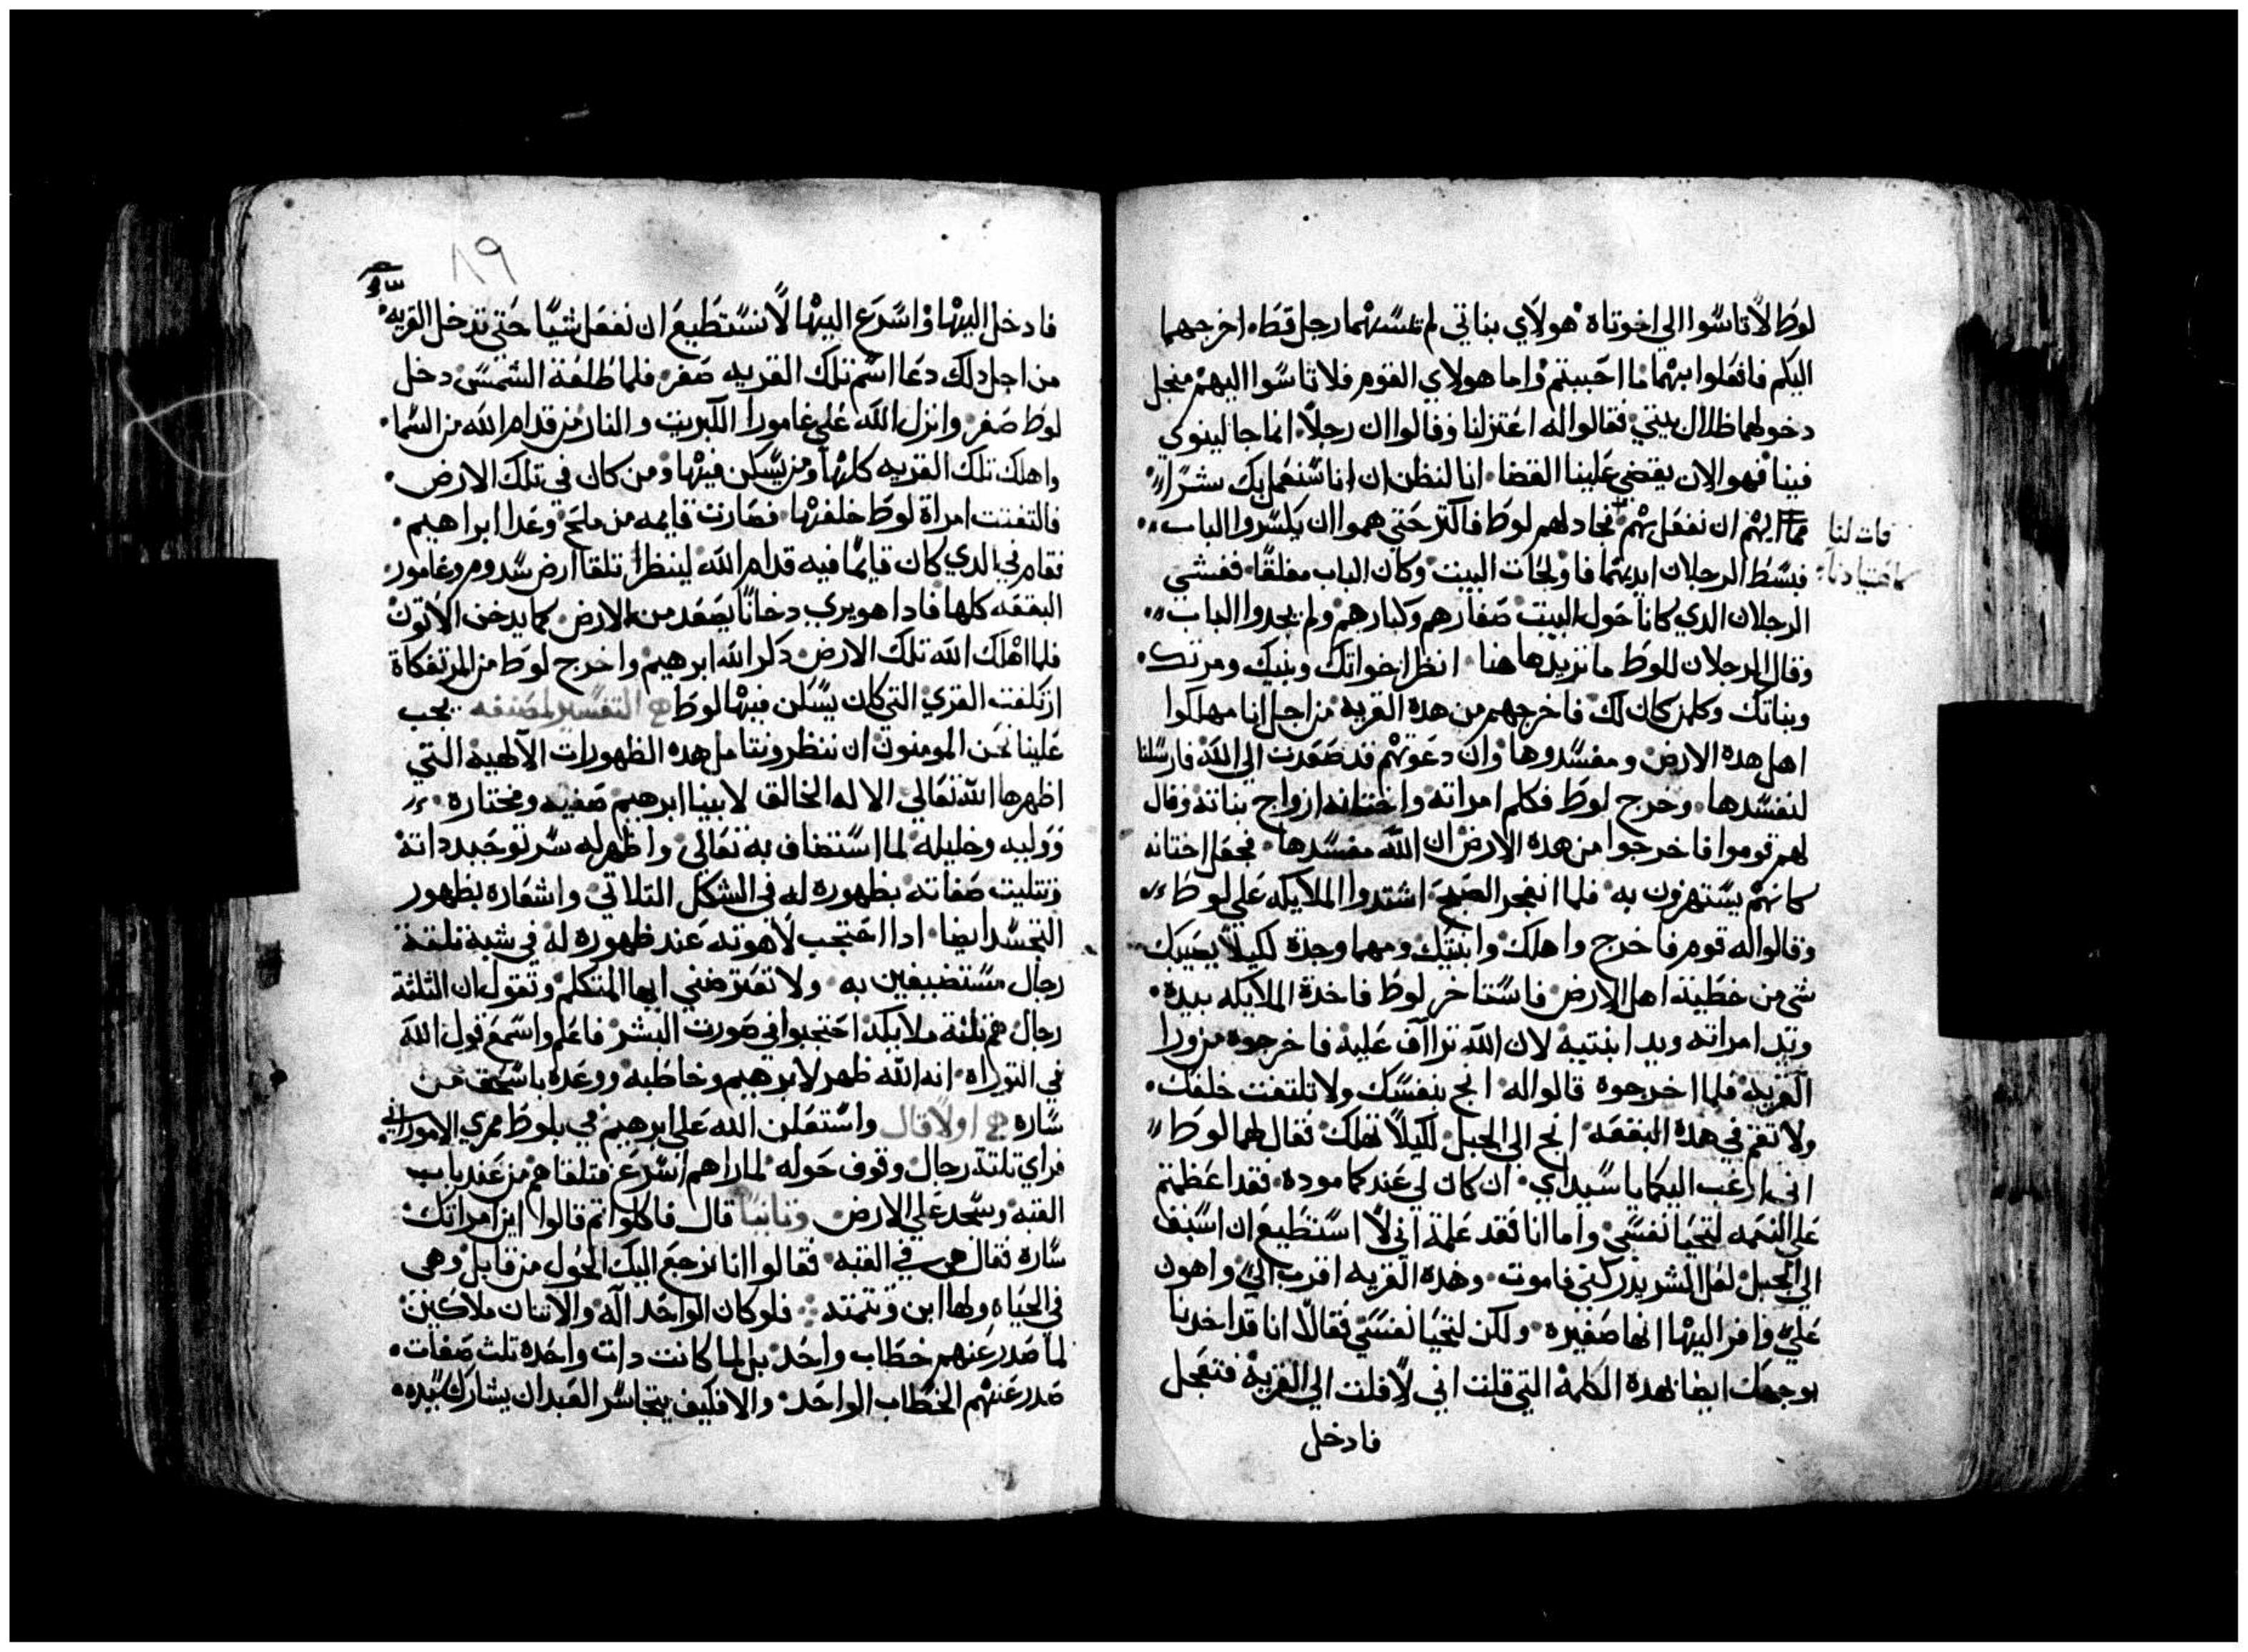 لوط لا تاسوا الي اخوتاه هولاي بناتي لم تمسهما رجل قط اخرجهما
اليكم فافعلوا بهما ما احببتم واما هولاي القوم فلا تاسوا اليهم منجل
دخولهما ظلال بيتي فقالوا له اعتزلنا وقالوا ان رجلا انما جا لينوي
فينا فهو الان يقضي علينا القضا انا لنظن ان انا سنعمل بك شرا
ان نفعل بهم فجادلهم لوط فاكتر حتي هموا ان يكسروا الباب
فات لنا
فبسط الرجلان ايديهما فاولجات البيت وكان الباب مغلقا فغشي
الرجلان الدي كانا حول البيت صغارهم وكبارهم ولم يجدوا الباب
وقال الرجلان للوط ما تزيد هاهنا انظر اخواتك وبنيك ومرتك
وبناتك وكلمن كان لك فاخرجهم من هده القريه من اجل انا مهلكوا
اهل هده الارض ومفسدوها وان دعوتهم قد صعدت الي الله فارسلنا
لنفسدها وخرج لوط فكلم امراته واختانه ازواج بناته وقال
لهم قوموا فاخرجوا من هده الارض ان الله مفسدها فجعل اختانه
كانهم يستهزون به فلما انفجر الصبح اشتدوا الملايكه علي لوط
وقالوا له قوم فاخرج واهلك وابنتيك ومهما وجدة لكيلا يصيبك
شي من خطية اهل الارض فاستاخر لوط فاخدة الملايكه بيدة
وبيد امراته وبيد ابنتيه لان الله تراآف عليه فاخرجوه من ورا
القريه فلما اخرجوه قالوا له انج بنفسك ولا تلتفت خلفك
ولا تقم في هده البقعه انج الي الجبل لكيلا تهلك فقال لهما لوط
اني ارغب اليكما يا سيداي ان كان لي عندكما موده فقد اعظمتم
علي النعمه لتحيا نفسي واما انا فقد علمة اني لا استطيع ان
الي الجبل لعل الشر يدركني فاموت وهده القريه اقرب الي واهون
علي وافر اليها انها صغيره ولكن لتحيا نفسي فقالا انا قد اخدنا
بوجهك ايضا بهده الكلمة التي قلت اني لافلت الي القرية فتعجل
فادخل
٨٩
فادخل اليها واسرع اليها لا نستطيع ان نفعل شيا حتي تدخل القريه
من اجل دلك دعا اسم تلك القريه صغر فلما طلعة الشمس دخل
لوط صغر وانزل الله علي غامورا الكبريت والنار من قدام الله من السما
واهلك تلك القريه كلها ومن يسكن فيها ومن كان في تلك الارض
فالتفتت امراة لوط خلفها فصارت قايمه من ملح وغدا ابراهيم
فقام في الدي كان قايما فيه قدام الله لينظر تلقا ارض سدوم وغامور
البقعه كلها فادا هو يري دخانا يصعد من الارض كما يدخن الاتون
فلما اهلك الله تلك الارض دكر الله ابرهيم واخرج لوط من المرتفكاة
ارتكفت القري التي كان يسكن فيها لوط التفسير لمصنفه يجب
علينا نحن المومنون ان ننظر ونتامل هده الظهورات الآلهيه التي
اظهرها الله تعالي الاله الخالق لابينا ابرهيم صفيه ومختاره
ووليه وخليله لما استضاف به تعالي واظهر له سر توحيد داته
وتتليت صفاته بظهوره له في الشكل التلاتي واشعاره بظهور
التجسد ايضا ادا احتجب لاهوته عند ظهوره له في شبه تلتة
رجال مستضيفين به ولا تعترضني ايها المتكلم وتقول ان التلتة
رجال هم تلتة ملايكه احتجبوا في صورت البشر فاعلم واسمع قول الله
في التوراه انه الله ظهر لابرهيم وخاطبه ووعده باسحق من
ساره اولا قال واستعلن الله علي ابرهيم في بلوط ممري الاموراني
فراي تلتة رجال وقوف حوله لما راهم اسرع فتلقاهم من عند باب
القبه وسجد علي الارض وتانيا قال فاكلوا تم قالوا اين امراتك
ساره فقال هي في القبه فقالوا انا نرجع اليك الحول من قابل وهي
في الحياه ولها ابن وتتمته فلو كان الواحد اله والاتنان ملاكين
لما صدر عنهم خطاب واحد بل لما كانت دات واحده تلت صفات
صدر عنهم الخطاب الواحد والا فكيف يتجاسر العبد ان يشارك سيده